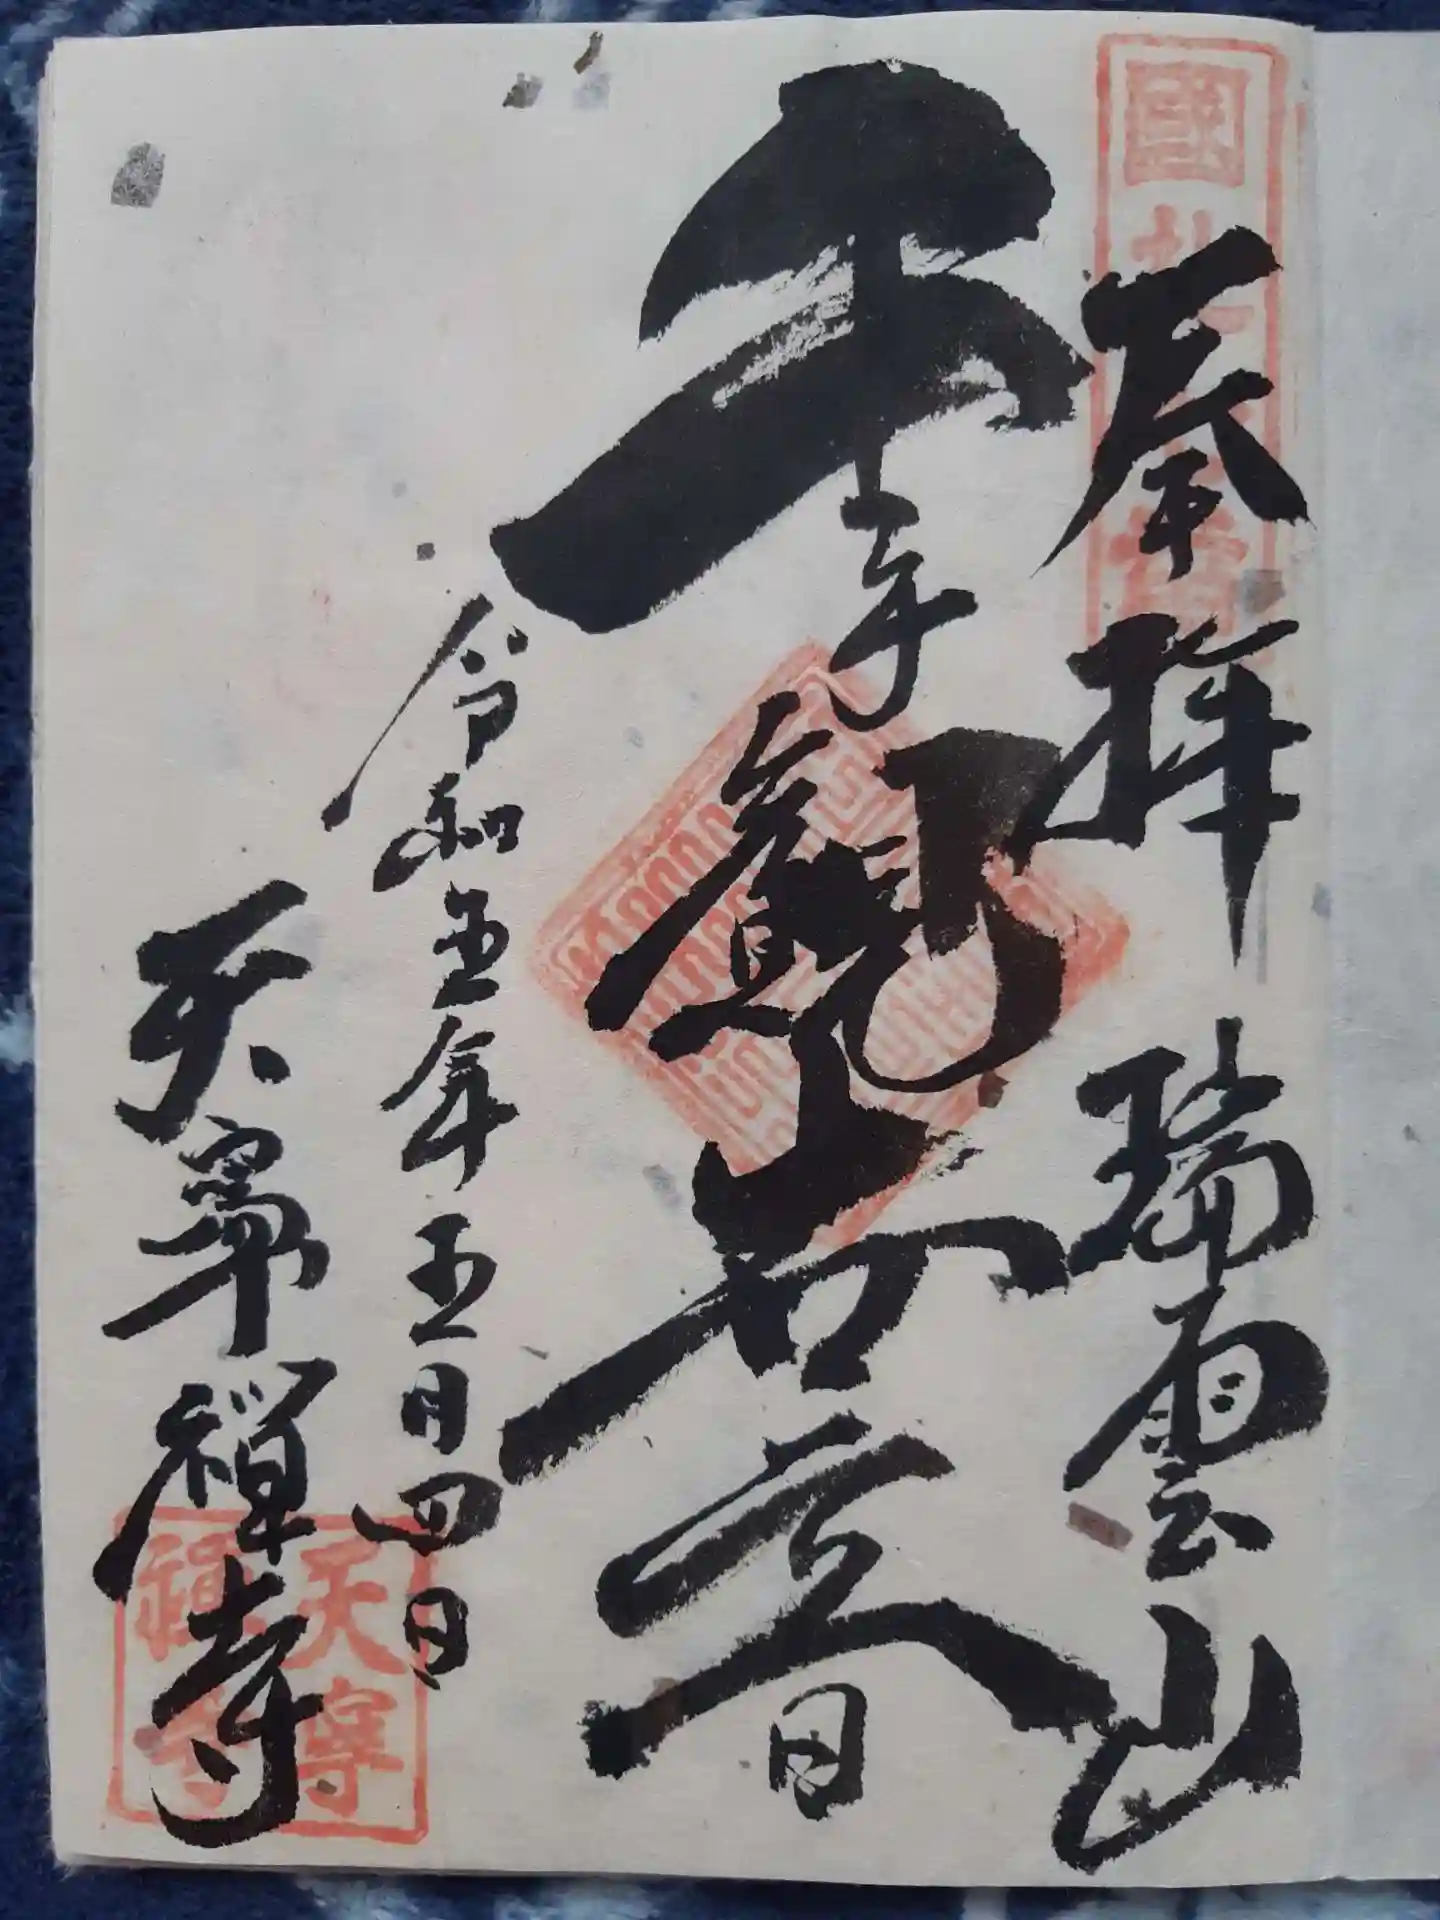 奉拝 瑞雲山
千手観世音
令和五年五月四日
天寧禅寺
天寧
禅寺